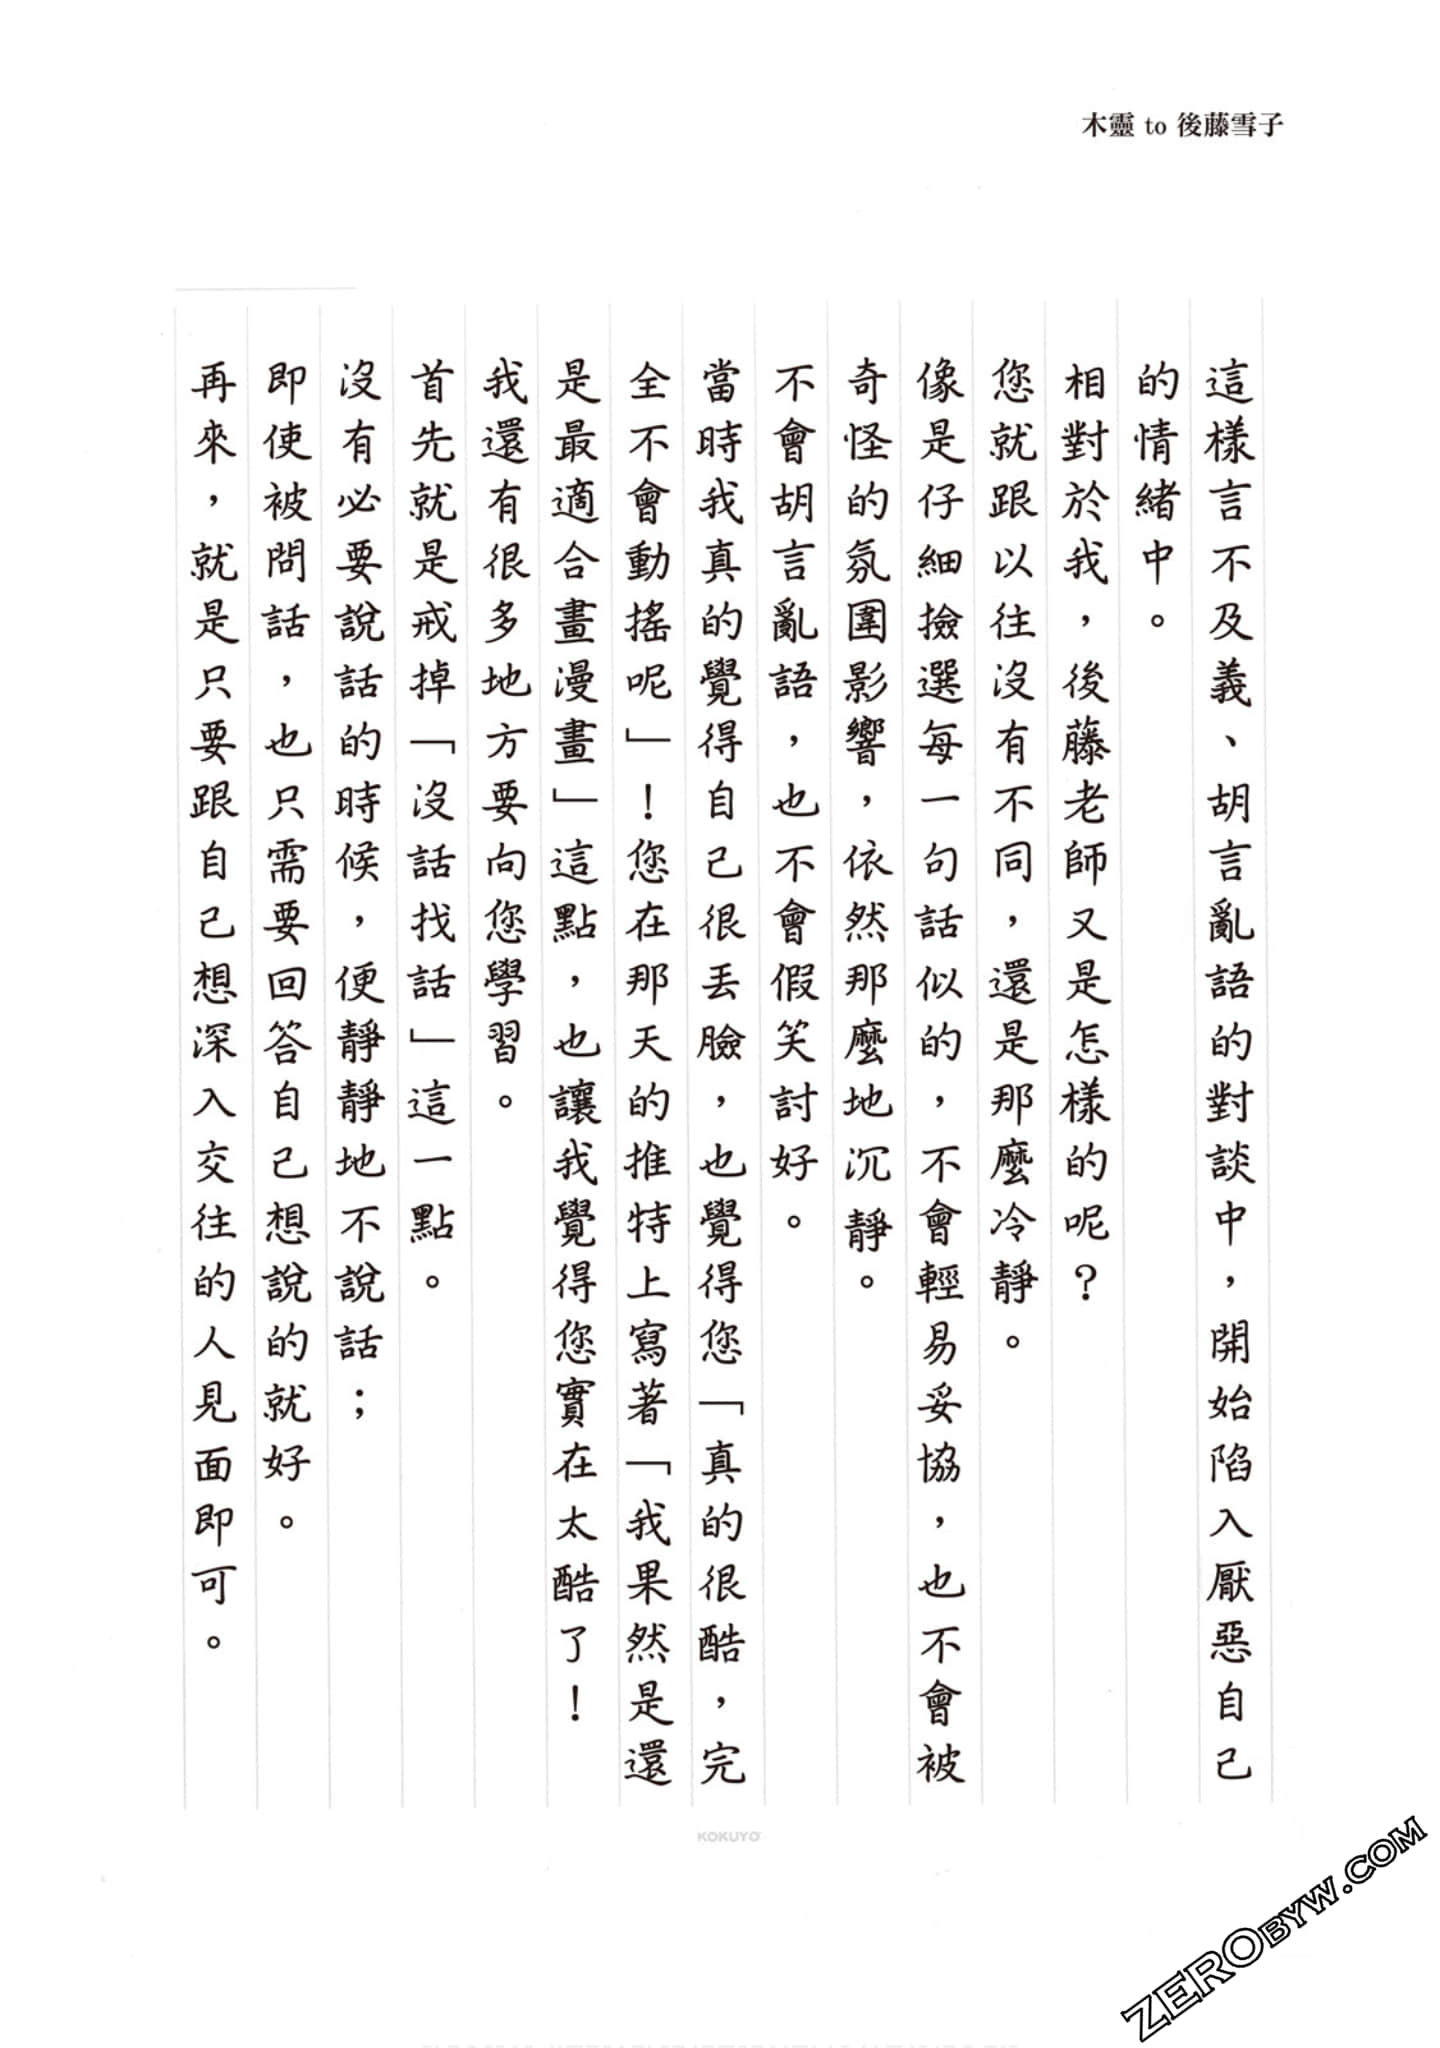 木靈 to 後藤雪子
這樣言不及義、胡言亂語的對談中，開始陷入厭惡自己
的情緒中。
相對於我，後藤老師又是怎樣的呢？
您就跟以往沒有不同，還是那麼冷靜。
像是仔細撿選每一句話似的，不會輕易妥協，也不會被
奇怪的氛圍影響，依然那麼地沉靜。
不會胡言亂語，也不會假笑討好。
當時我真的覺得自己很丟臉，也覺得您「真的很酷，完
全不會動搖呢」！您在那天的推特上寫著「我果然是還
是最適合畫漫畫」這點，也讓我覺得您實在太酷了！
我還有很多地方要向您學習。
首先就是戒掉「沒話找話」這一點。
沒有必要說話的時候，便靜靜地不說話；
即使被問話，也只需要回答自己想說的就好。
再來，就是只要跟自己想深入交往的人見面即可。
KOKUYO
ZEROBYW.COM